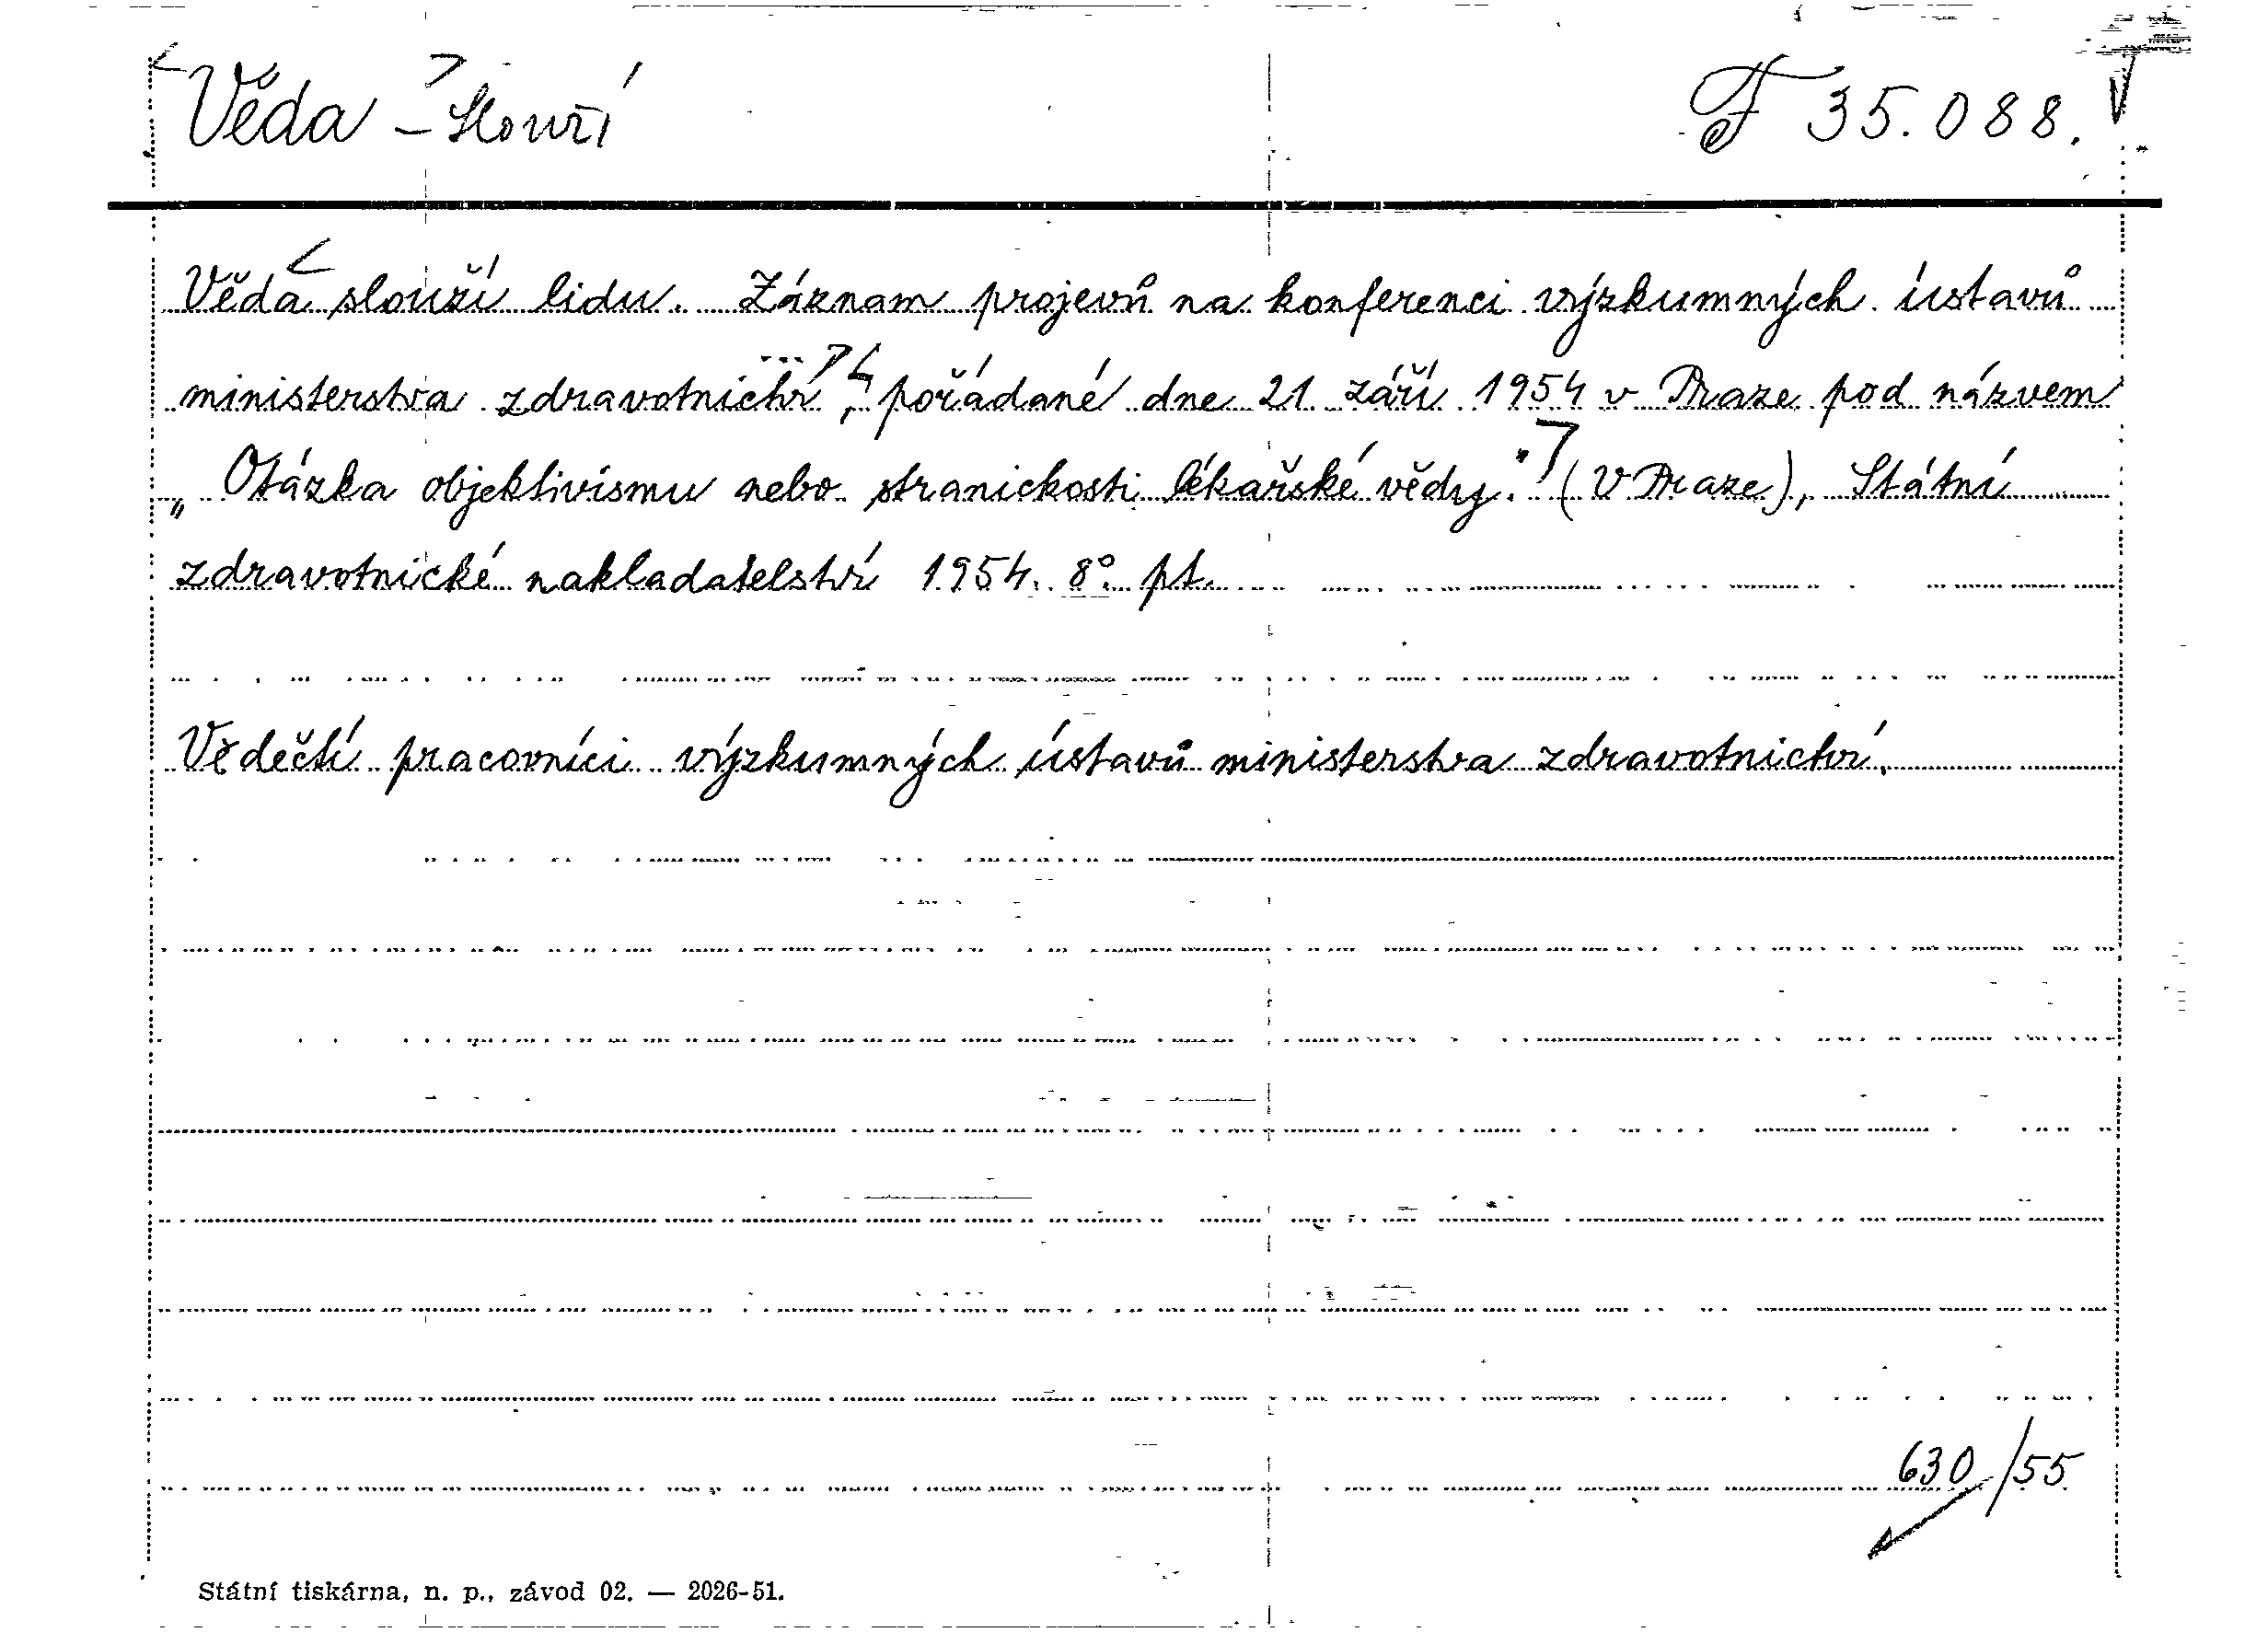 Věda - slouží
F 35.088.
Věda slouží lidu. Záznam projevů na konferenci výzkumných ústavů
ministerstva zdravotnictví, pořádané dne 21. září 1954 v Praze pod názvem
„Otázka objektivismu nebo stranickosti lékařské vědy." (V Praze), Státní
zdravotnické nakladatelství 1954. 8° pt.
Vědečtí pracovníci výzkumných ústavů ministerstva zdravotnictví.
630/55
Státní tiskárna, n. p., závod 02. — 2026-51.